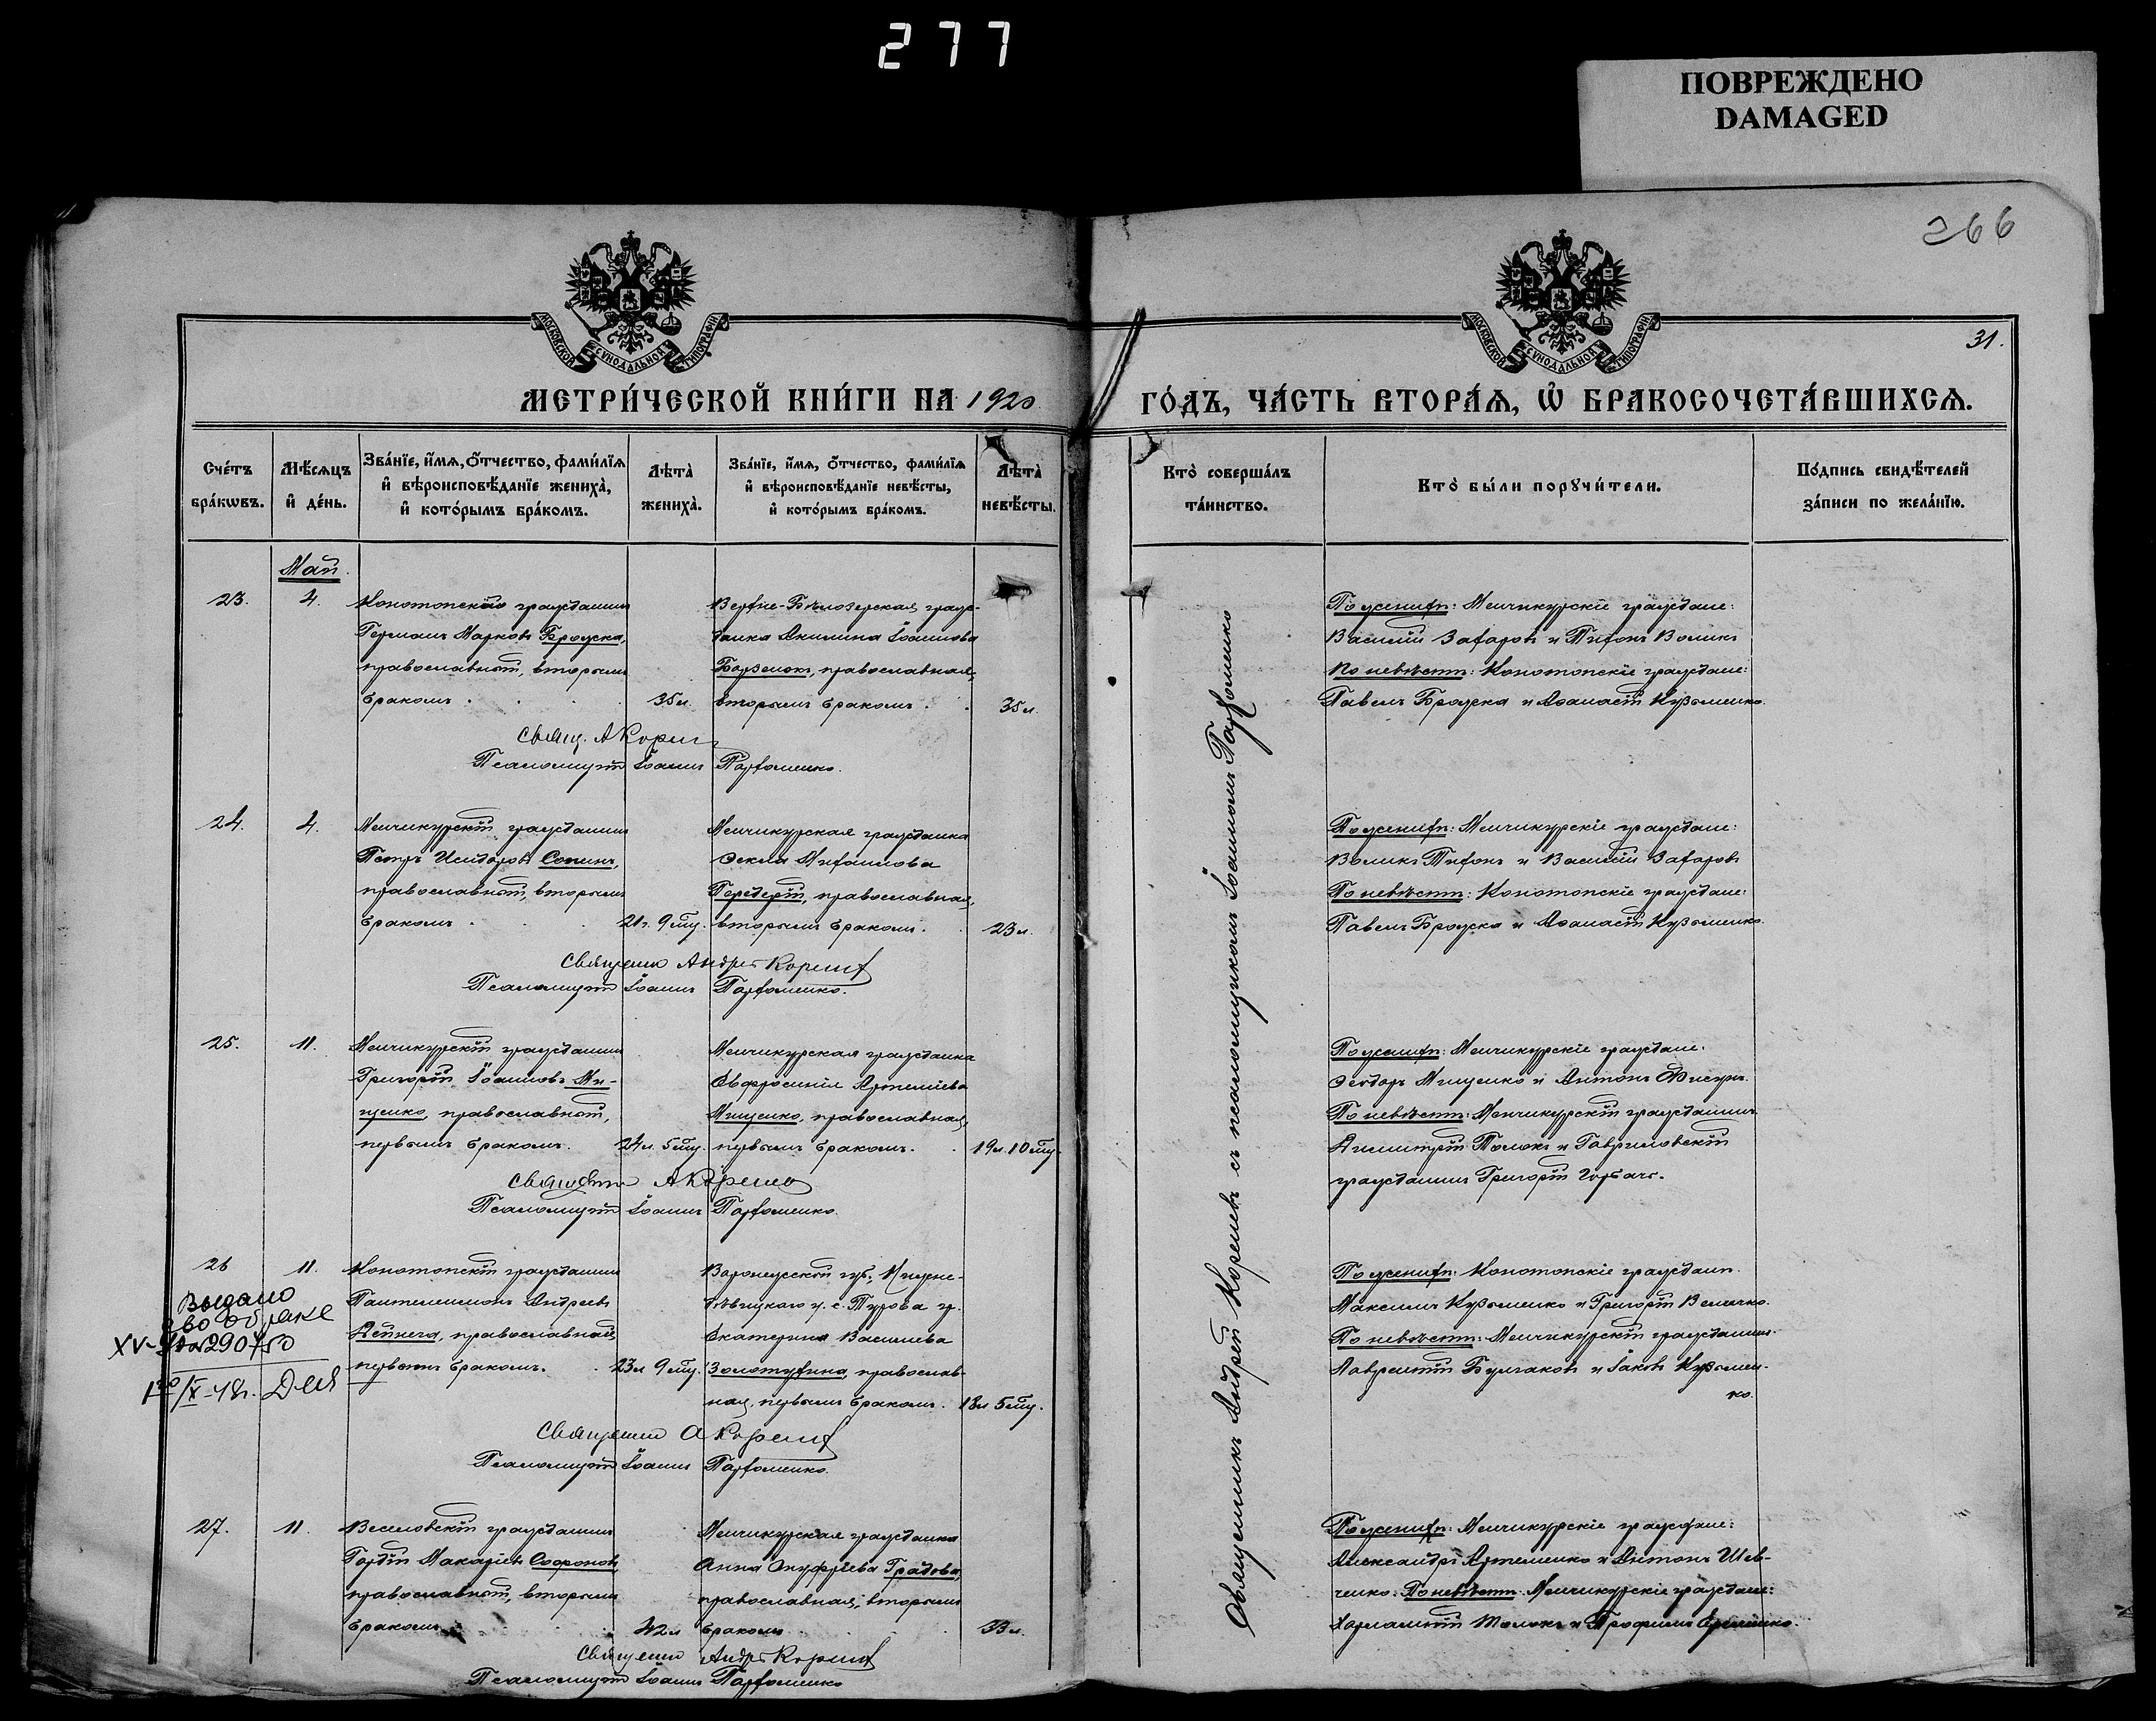 277
ПОВРЕЖДЕНО
DAMAGED
266
31.
МОСКОВСКОЙ СѴНОДАЛЬНОЙ ТИПОГРАФІИ
МОСКОВСКОЙ СѴНОДАЛЬНОЙ ТИПОГРАФІИ
МЕТРИ́ЧЕСКОЙ КНИ́ГИ НА 1920 ГО́ДЪ, ЧА́СТЬ ВТОРА́Я, Ѡ БРАКОСОЧЕТА́ВШИХСЯ.
Сче́тъ бра́кѡвъ.
Мѣ́сяцъ и де́нь.
Зва́нїе, и́мя, о́тчество, фами́лїя и вѣроисповѣ́данїе жениха̀, и кото́рымъ бра́комъ.
Лѣта̀ жениха̀.
Зва́нїе, и́мя, о́тчество, фами́лїя и вѣроисповѣ́данїе невѣ́сты, и кото́рымъ бра́комъ.
Лѣта̀ невѣ́сты.
Кто̀ соверша́лъ та́инство.
Кто̀ бы́ли порꙋчи́тели.
По́дпись свидѣ́телей за́писи по жела́нїю.
Май.
23. 4.
Конотопскій гражданинъ
Германъ Марковъ Бродска,
православный, вторымъ
бракомъ 35 л.
Верхне-Бѣлозерская граж-
данка Акилина Іоаннова
православная,
вторымъ бракомъ 35 л.
По женихѣ: Менчикурскіе граждане:
Василій Захаровъ и Тихонъ Воликъ
По невѣстѣ: Конотопскіе граждане:
Павелъ и Аѳанасій Кузьменко.
Свящ. А Корнев
Псаломщикъ Іоаннъ Пархоменко.
24. 4.
Менчикурскій гражданинъ
Петръ Исидоровъ Сопинъ,
православный, вторымъ
бракомъ 21 г. 9 мц.
Менчикурская гражданка
Ѳекла Михаилова
Передерій, православная,
вторымъ бракомъ 23 л.
По женихѣ: Менчикурскіе граждане:
Воликъ Тихонъ и Василій Захаровъ
По невѣстѣ: Конотопскіе граждане:
Павелъ и Аѳанасій Кузьменко.
Священник Андрей
Псаломщикъ Іоаннъ Пархоменко.
25. 11.
Менчикурскій гражданинъ
Григорій Іоанновъ Ми-
щенко, православный,
первымъ бракомъ. 24 л. 5 мц.
Менчикурская гражданка
Евфросинія Артеміева
Мищенко, православная,
первымъ бракомъ. 19 л. 10 мц.
По женихѣ: Менчикурскіе граждане:
Ѳеодоръ Мищенко и Антонъ
По невѣстѣ: Менчикурскій гражданинъ
Димитрій Толокъ и Гавриловскій
гражданинъ Григорій Горбачъ.
Священник
Псаломщикъ Іоаннъ Пархоменко.
26 11.
Конотопскій гражданинъ
Пантелеимонъ Андреевъ
Дейнега, православный,
первымъ бракомъ. 23 л 9 мц.
Воронежской губ., Нижне-
дѣвицкаго у. с. Турова гр.
Екатерина Василіева
Золотухина, православ-
ная, первымъ бракомъ. 18 л 5 мц.
По женихѣ: Конотопскіе граждане.
Максимъ Кузьменко и Григорій Величко.
По невѣстѣ: Менчикурскій гражданинъ.
Лаврентій Булгаковъ и Іаковъ Кузьмен-
ко.
Выдано
о браке
Священник А
Псаломщикъ Іоаннъ Пархоменко.
27. 11.
Веселовскій гражданинъ
Гордій Макаріевъ Софроновъ,
православный, вторымъ
бракомъ 42 л
Менчикурская гражданка
Анна Онуфріева Градова,
православная, вторымъ
бракомъ 33 л.
По женихѣ: Менчикурскіе граждане:
Александръ Артеменко и Антонъ Шев-
ченко. По невѣстѣ: Менчикурскіе граждане:
Харлампій Толокъ и Трофимъ
Священник Андрей
Псаломщикъ Іоаннъ Пархоменко
Священникъ Андрей Корневъ съ псаломщикомъ Іоанномъ Пархоменко